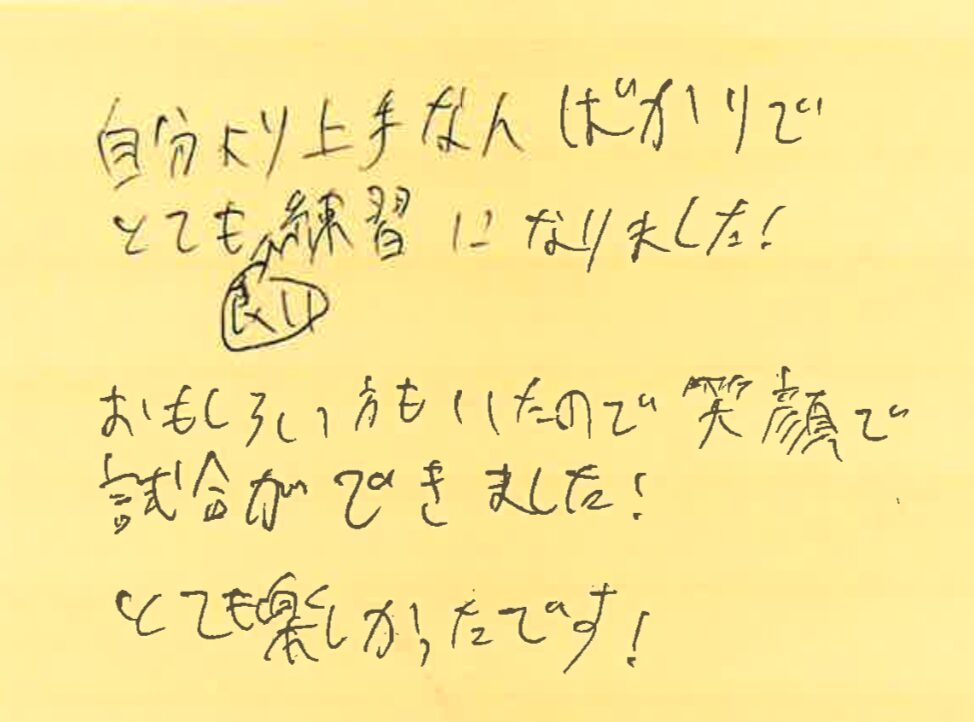 自分より上手な人ばかりで
とても良い練習になりました!
おもしろい方もいたので笑顔で
試合ができました!
とても楽しかったです!